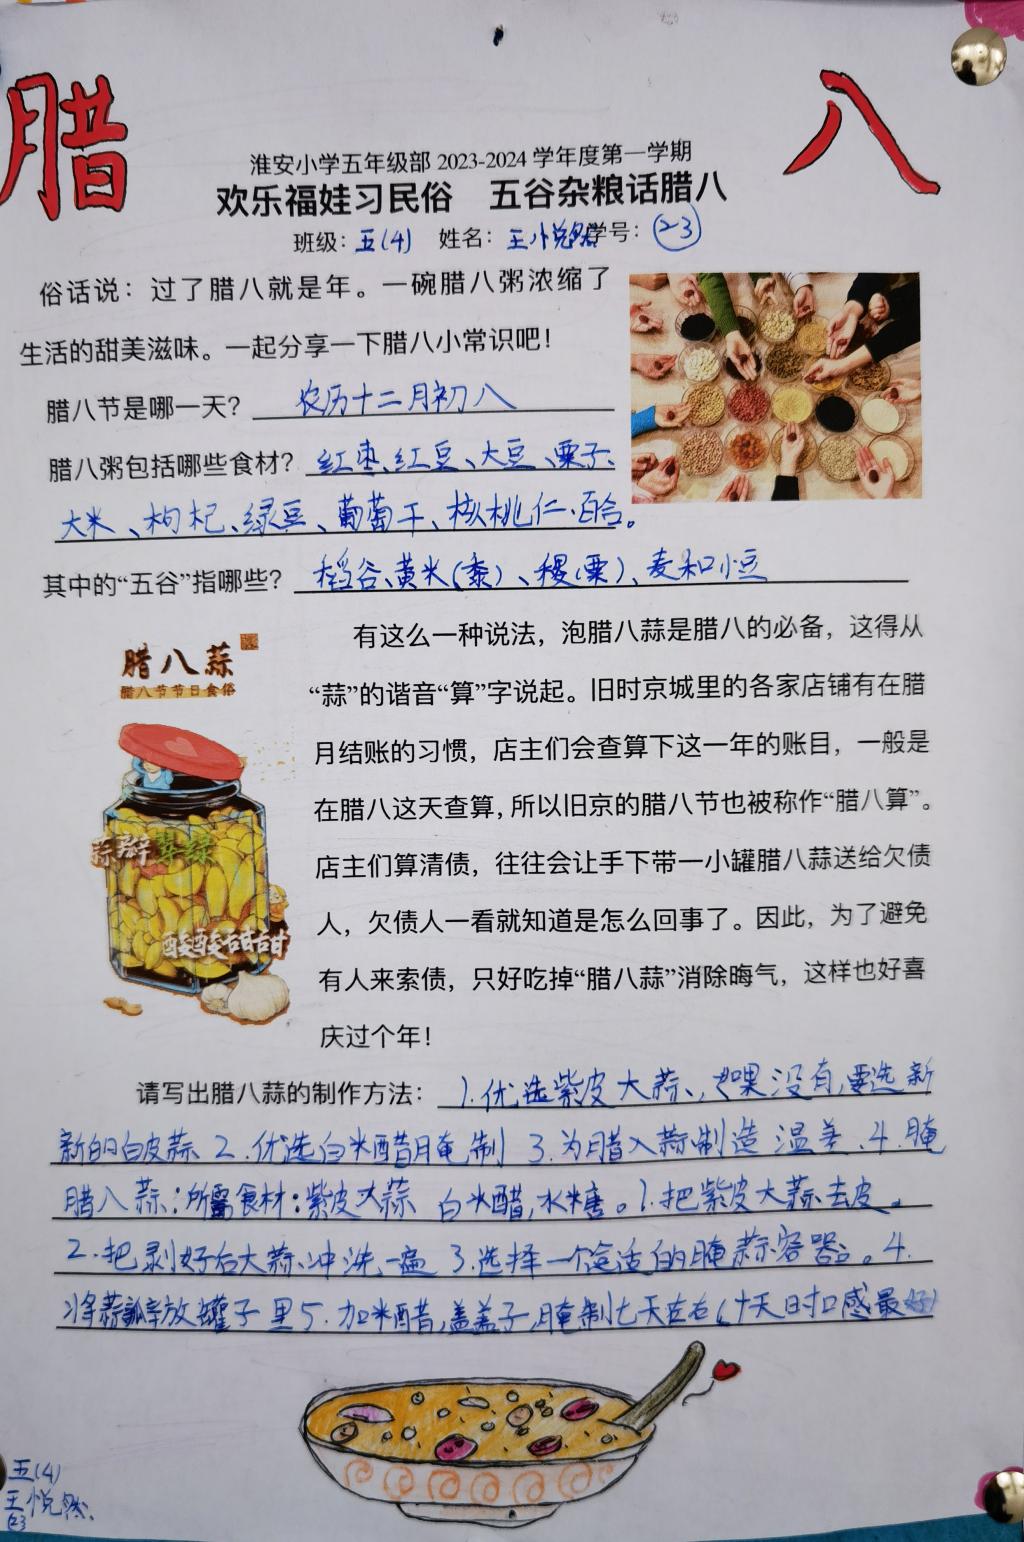 腊 八
淮安小学五年级部 2023-2024 学年度第一学期
欢乐福娃习民俗 五谷杂粮话腊八
班级：五(4) 姓名：王悦然 学号：23
俗话说：过了腊八就是年。一碗腊八粥浓缩了
生活的甜美滋味。一起分享一下腊八小常识吧！
腊八节是哪一天？农历十二月初八
腊八粥包括哪些食材？红枣、红豆、大豆、栗子、
大米、枸杞、绿豆、葡萄干、核桃仁、百合。
其中的“五谷”指哪些？稻谷、黄米(黍)、稷(粟)、麦和小豆
腊八蒜
腊八节节日食俗
蒜瓣翠绿
酸酸甜甜
有这么一种说法，泡腊八蒜是腊八的必备，这得从
“蒜”的谐音“算”字说起。旧时京城里的各家店铺有在腊
月结账的习惯，店主们会查算下这一年的账目，一般是
在腊八这天查算，所以旧京的腊八节也被称作“腊八算”。
店主们算清债，往往会让手下带一小罐腊八蒜送给欠债
人，欠债人一看就知道是怎么回事了。因此，为了避免
有人来索债，只好吃掉“腊八蒜”消除晦气，这样也好喜
庆过个年！
请写出腊八蒜的制作方法：1.优选紫皮大蒜、如果没有,要选新
新的白皮蒜 2.优选白米醋腌制 3.为腊八蒜制造温差 4.腌
腊八蒜：所需食材：紫皮大蒜 白米醋,冰糖。1.把紫皮大蒜去皮。
2.把剥好后大蒜冲洗一遍 3.选择一个合适的腌蒜容器。4.
将蒜瓣放罐子里5.加米醋,盖盖子,腌制七天左右(十天时口感最好)
五(4)
王悦然
23